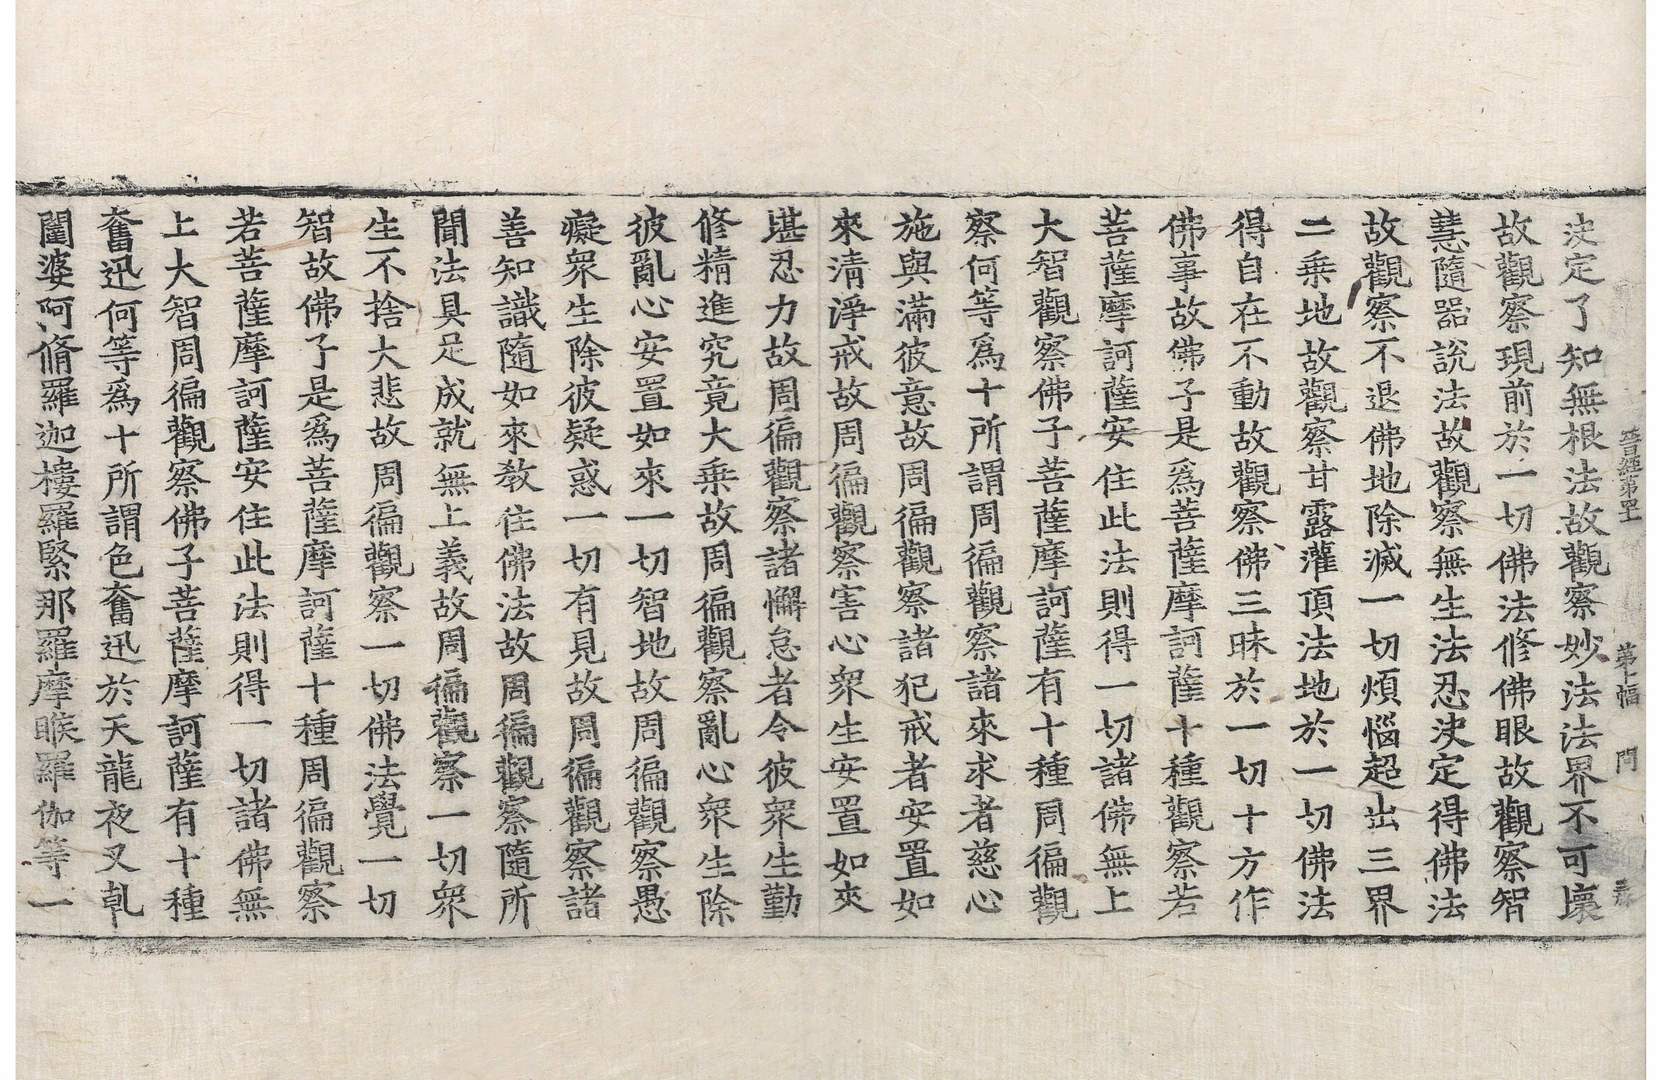 晉經第四十 第十幅 門
決定了知無根法故觀察妙法法界不可壞
故觀察現前於一切佛法修佛眼故觀察智
慧隨器說法故觀察無生法忍決定得佛法
故觀察不退佛地除滅一切煩惱超出三界
二乘地故觀察甘露灌頂法地於一切佛法
得自在不動故觀察佛三昧於一切十方作
佛事故佛子是爲菩薩摩訶薩十種觀察若
菩薩摩訶薩安住此法則得一切諸佛無上
大智觀察佛子菩薩摩訶薩有十種周徧觀
察何等爲十所謂周徧觀察諸來求者慈心
施與滿彼意故周徧觀察諸犯戒者安置如
來清淨戒故周徧觀察害心衆生安置如來
堪忍力故周徧觀察諸懈怠者令彼衆生勤
修精進究竟大乘故周徧觀察亂心衆生除
彼亂心安置如來一切智地故周徧觀察愚
癡衆生除彼疑惑一切有見故周徧觀察諸
善知識隨如來教住佛法故周徧觀察隨所
聞法具足成就無上義故周徧觀察一切衆
生不捨大悲故周徧觀察一切佛法覺一切
智故佛子是爲菩薩摩訶薩十種周徧觀察
若菩薩摩訶薩安住此法則得一切諸佛無
上大智周徧觀察佛子菩薩摩訶薩有十種
奮迅何等爲十所謂色奮迅於天龍夜叉乹
闥婆阿脩羅迦樓羅緊那羅摩睺羅伽等一